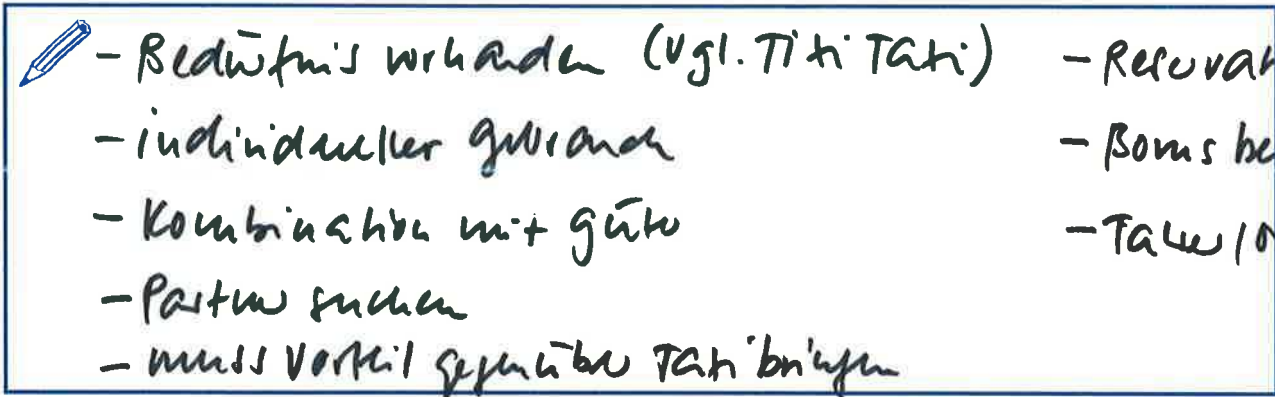 - Bedürfnis vorhanden (vgl. Titi Tati)
- individueller Gebrauch
- Kombination mit
- Partner suchen
- muss Vorteil gegenüber Tati bringen
- Bonus be